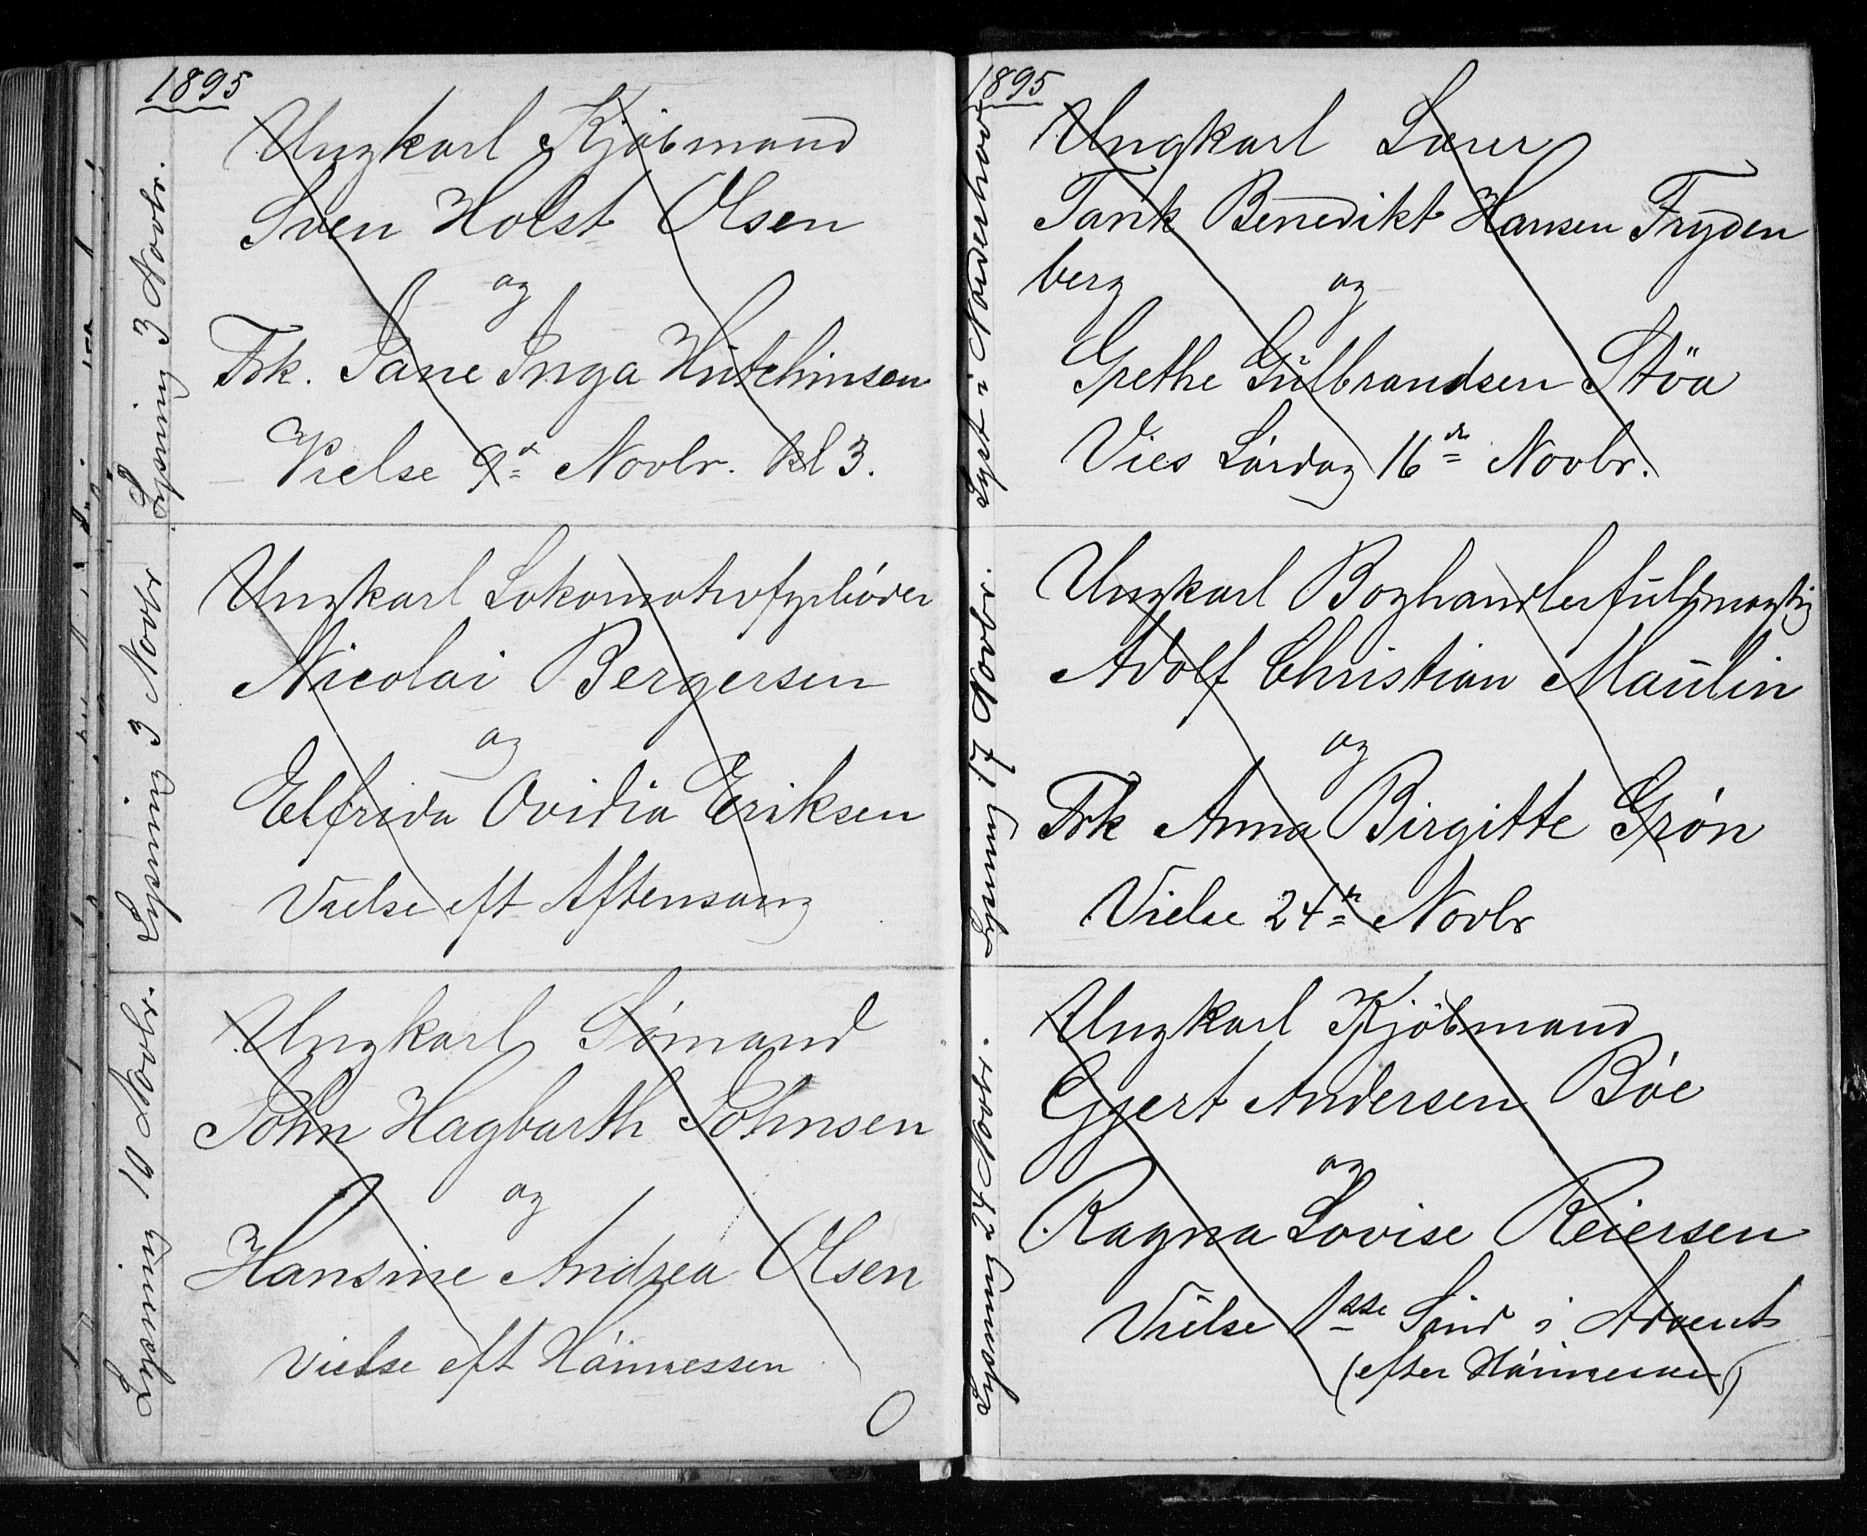 1895
Lysning 3 Novbr.
Ungkarl Kjöbmand
Sven Holst Olsen
og
Frk. Jane Inga Hutchinson
Vielse 9de Novbr. Kl 3.
Lysning 3 Novbr
Ungkarl Lokomotivfyrbóder
Nicolai Bergersen
og
Elfrida Ovidia Eriksen
Vielse eft Aftensang
Lysning 10 Novbr.
Ungkarl Sómand
John Hagbarth Johnsen
og
Hansine Andrea Olsen
Vielse eft Hóimessen
1895
Lyst i Nordenhov
Ungkarl Lærer
Tank Benedikt Hansen Fryden
berg og
Grethe Gŭlbrandsen Stöa
Vies Lórdag 16de Novbr.
Lysning 17 Novbr.
Ungkarl Boghandlerfuldmægtig
Adolf Christian Maŭlin
og
Frk Anna Birgitte Grón
Vielse 24de Novbr
Lysning 24 Novbr.
Ungkarl Kjöbmand
Gjert Andersen Bóe
og
Ragna Lovise Reiersen
Vielse 1ste Sónd i Advent
(efter Hóimessen)